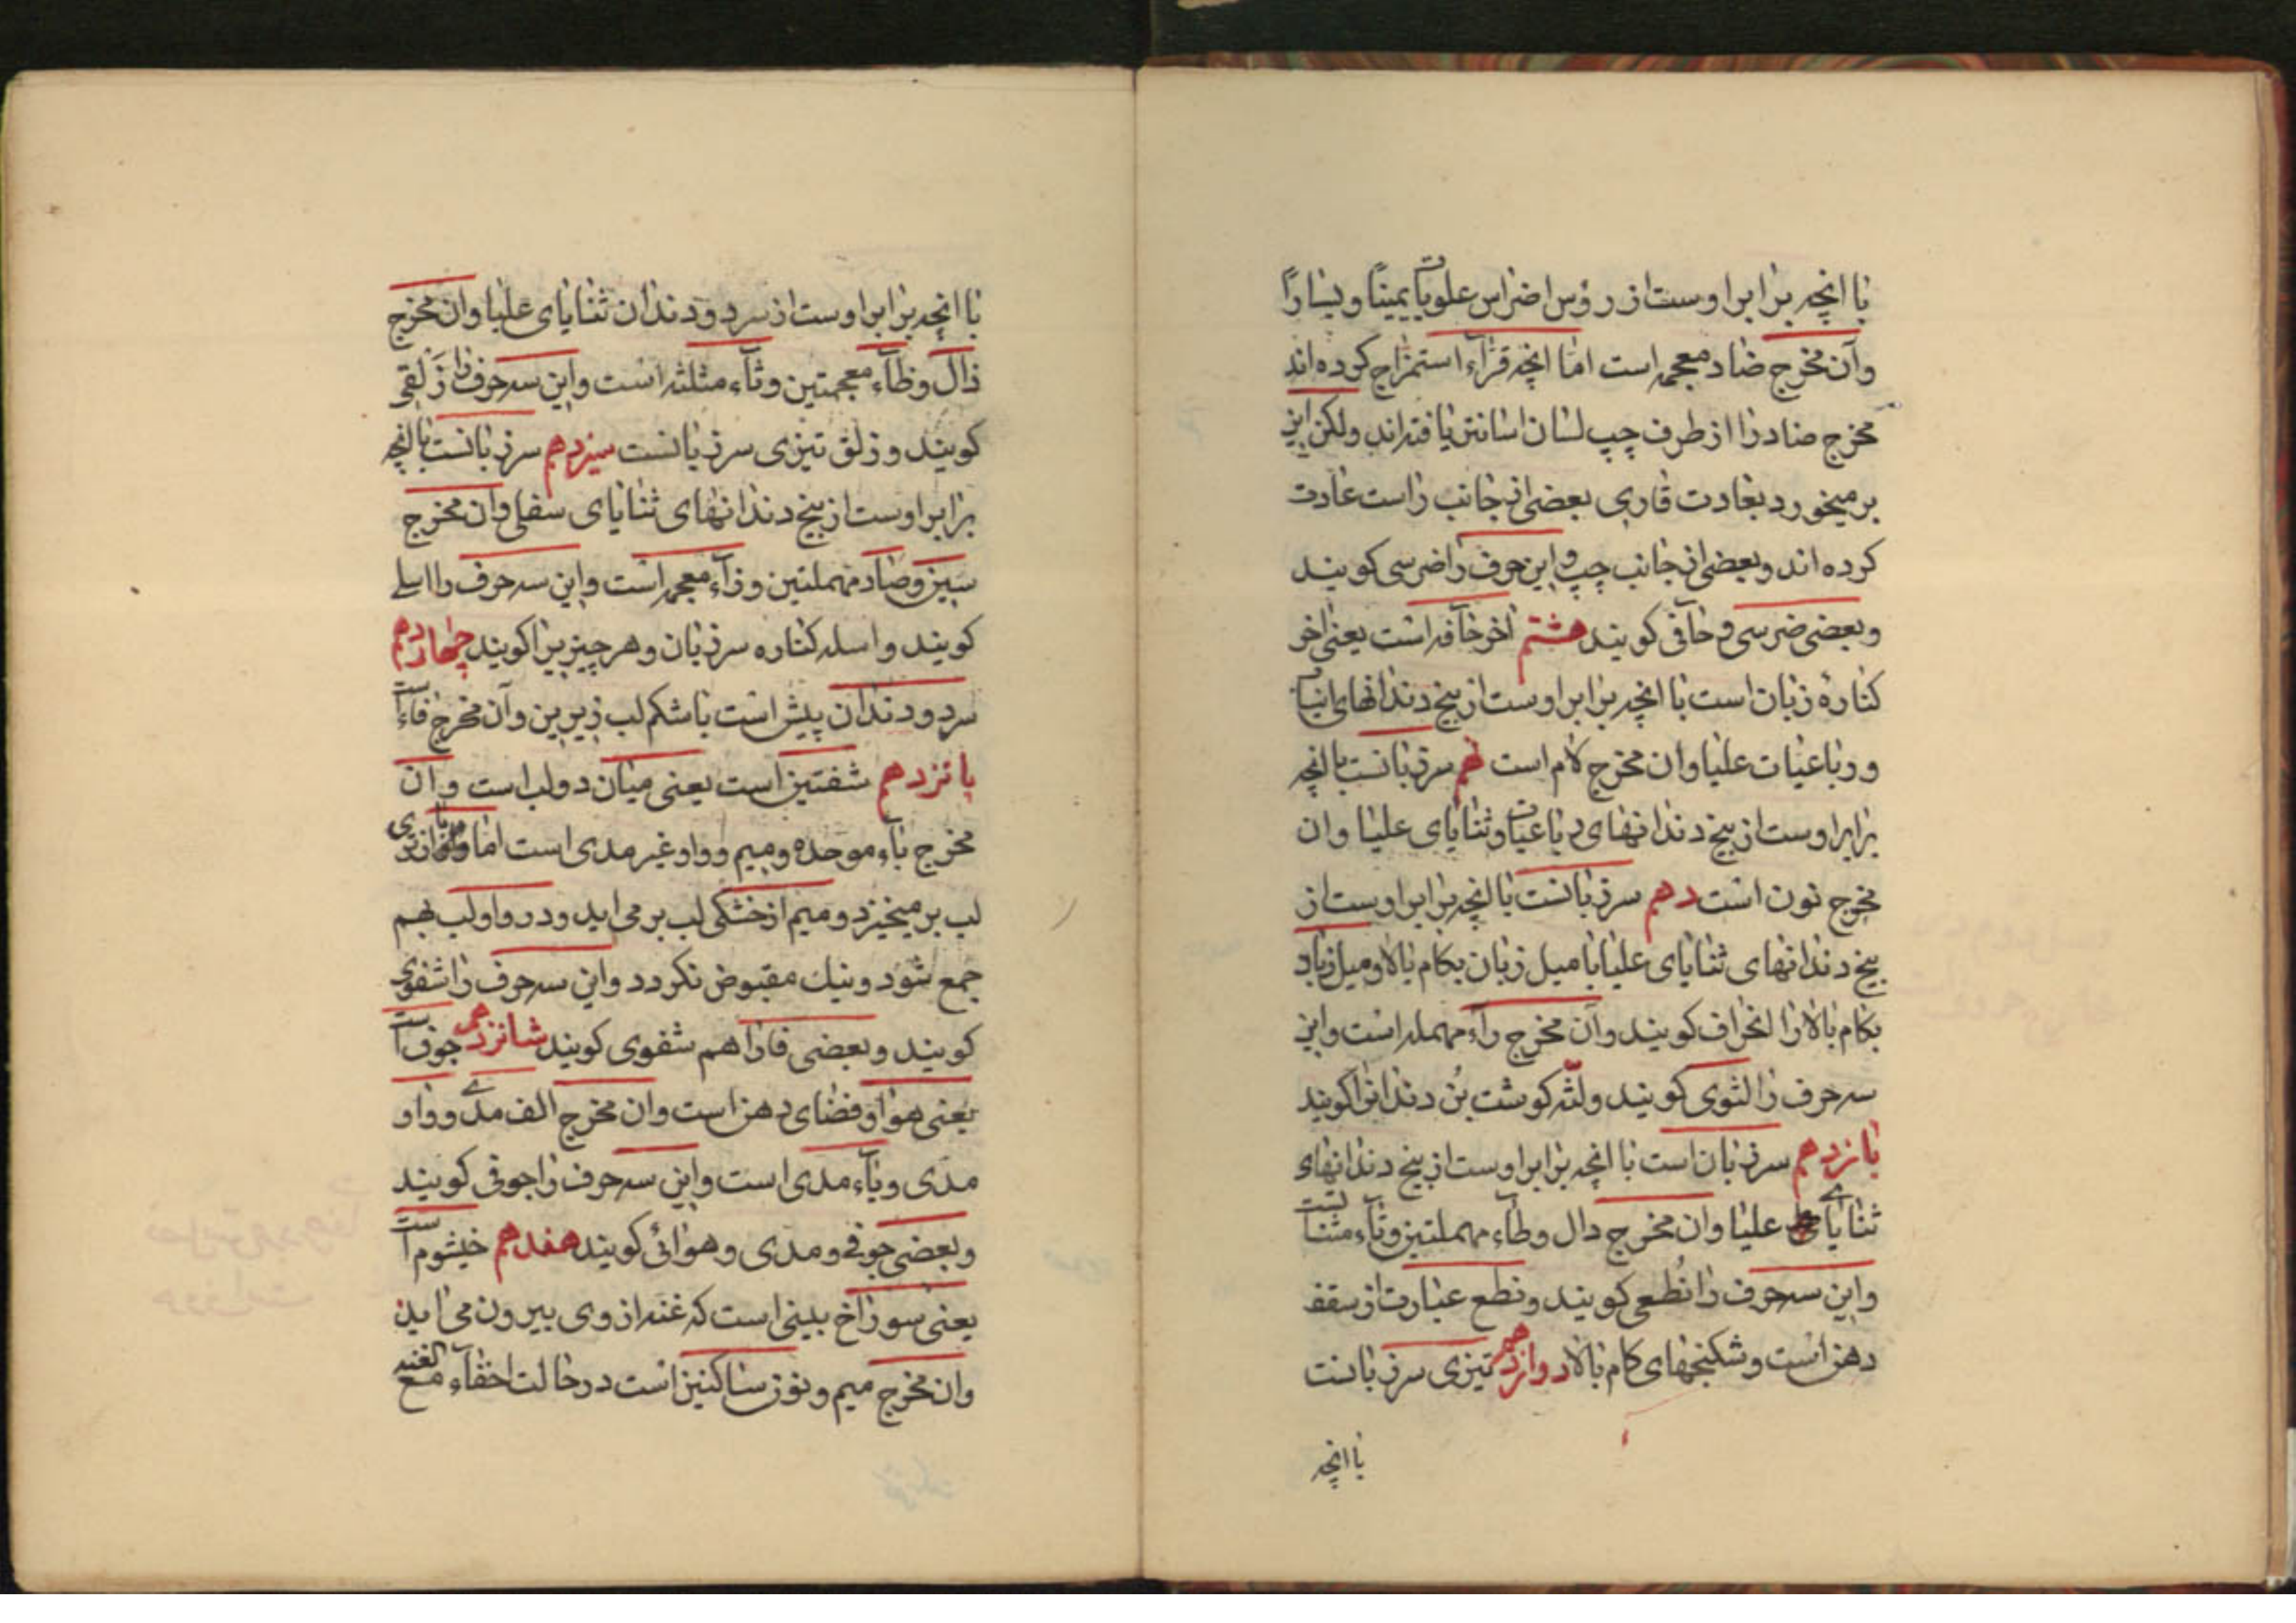 با انچه برابر اوست از رؤس اضراس علویات یمیناً و یساراً
وآن مخرج ضاد معجمه است اما انچه قرّاء استمزاج کرده اند
مخرج ضاد را از طرف چپ لسان اسانتر یافته اند ولکن این
بر میخورد بعادت قاری بعضی از جانب راست عادت
کرده اند و بعضی از جانب چپ و این حرف را ضرسی کویند
و بعضی ضرسی و حآفی کویند هشتم اخر حآفه است یعنی اخر
کنارهٔ زبان است با انچه برابر اوست از بیخ دندانهای انیاب
و رباعیات علیا وان مخرج لام است نهم سر زبانست با انچه
برابر اوست از بیخ دندانهای رباعیات وثنایای علیا وان
مخرج نون است دهم سر زبانست با انچه برابر اوست از
بیخ دندانهای ثنایای علیا با میل زبان بکام بالا و میل زبان
بکام بالا را انحراف کویند وآن مخرج رآء مهمله است واین
سه حرف را لثوی کویند ولثّه کوشت بُن دندانرا کویند
یازدهم سر زبان است با انچه برابر اوست از بیخ دندانهای
ثنایای علیا وان مخرج دال وطآء مهملتین وتآء مثناتست
واین سه حرف را نُطعی کویند ونطع عبارت از سقف
دهن است وشکنجهای کام بالا دوازدهم تیزی سر زبانست
با انچه
با انچه برابر اوست از سر دو دندان ثنایای علیا وان مخرج
ذال وظآء معجمتین وثآء مثلثه است واین سه حرف را زَلقی
کویند و زلق تیزی سر زبانست سیزدهم سر زبانست با انچه
برابر اوست از بیخ دندانهای ثنایای سفلی وان مخرج
سین وصاد مهملتین وزآء معجمه است واین سه حرف را اسلی
کویند و اسله کناره سر زبان وهر چیز یرا کویند چهاردهم
سر دو دندان پیش است با شکم لب زیرین وآن مخرج فاء است
پانزدهم شفتین است یعنی میان دو لب است وان
مخرج بآء موحده ومیم وواو غیر مدی است اما با از تری
لب بر میخیزد و میم از خشکی لب بر می اید ودر واو لب بهم
جمع شود ونیك مقبوض نکردد واین سه حرف را شفوی
کویند وبعضی فا را هم شفوی کویند شانزدهم جوف است
یعنی هوا وفضای دهن است وان مخرج الف مدّی وواو
مدّی ویآء مدی است واین سه حرف را جوفی کویند
وبعضی جوفی ومدی وهوائی کویند هفدهم خیشوم است
یعنی سوراخ بینی است که غنه از وی بیرون می اید
وان مخرج میم ونون ساکنین است در حالت اخفآء مع الغنه